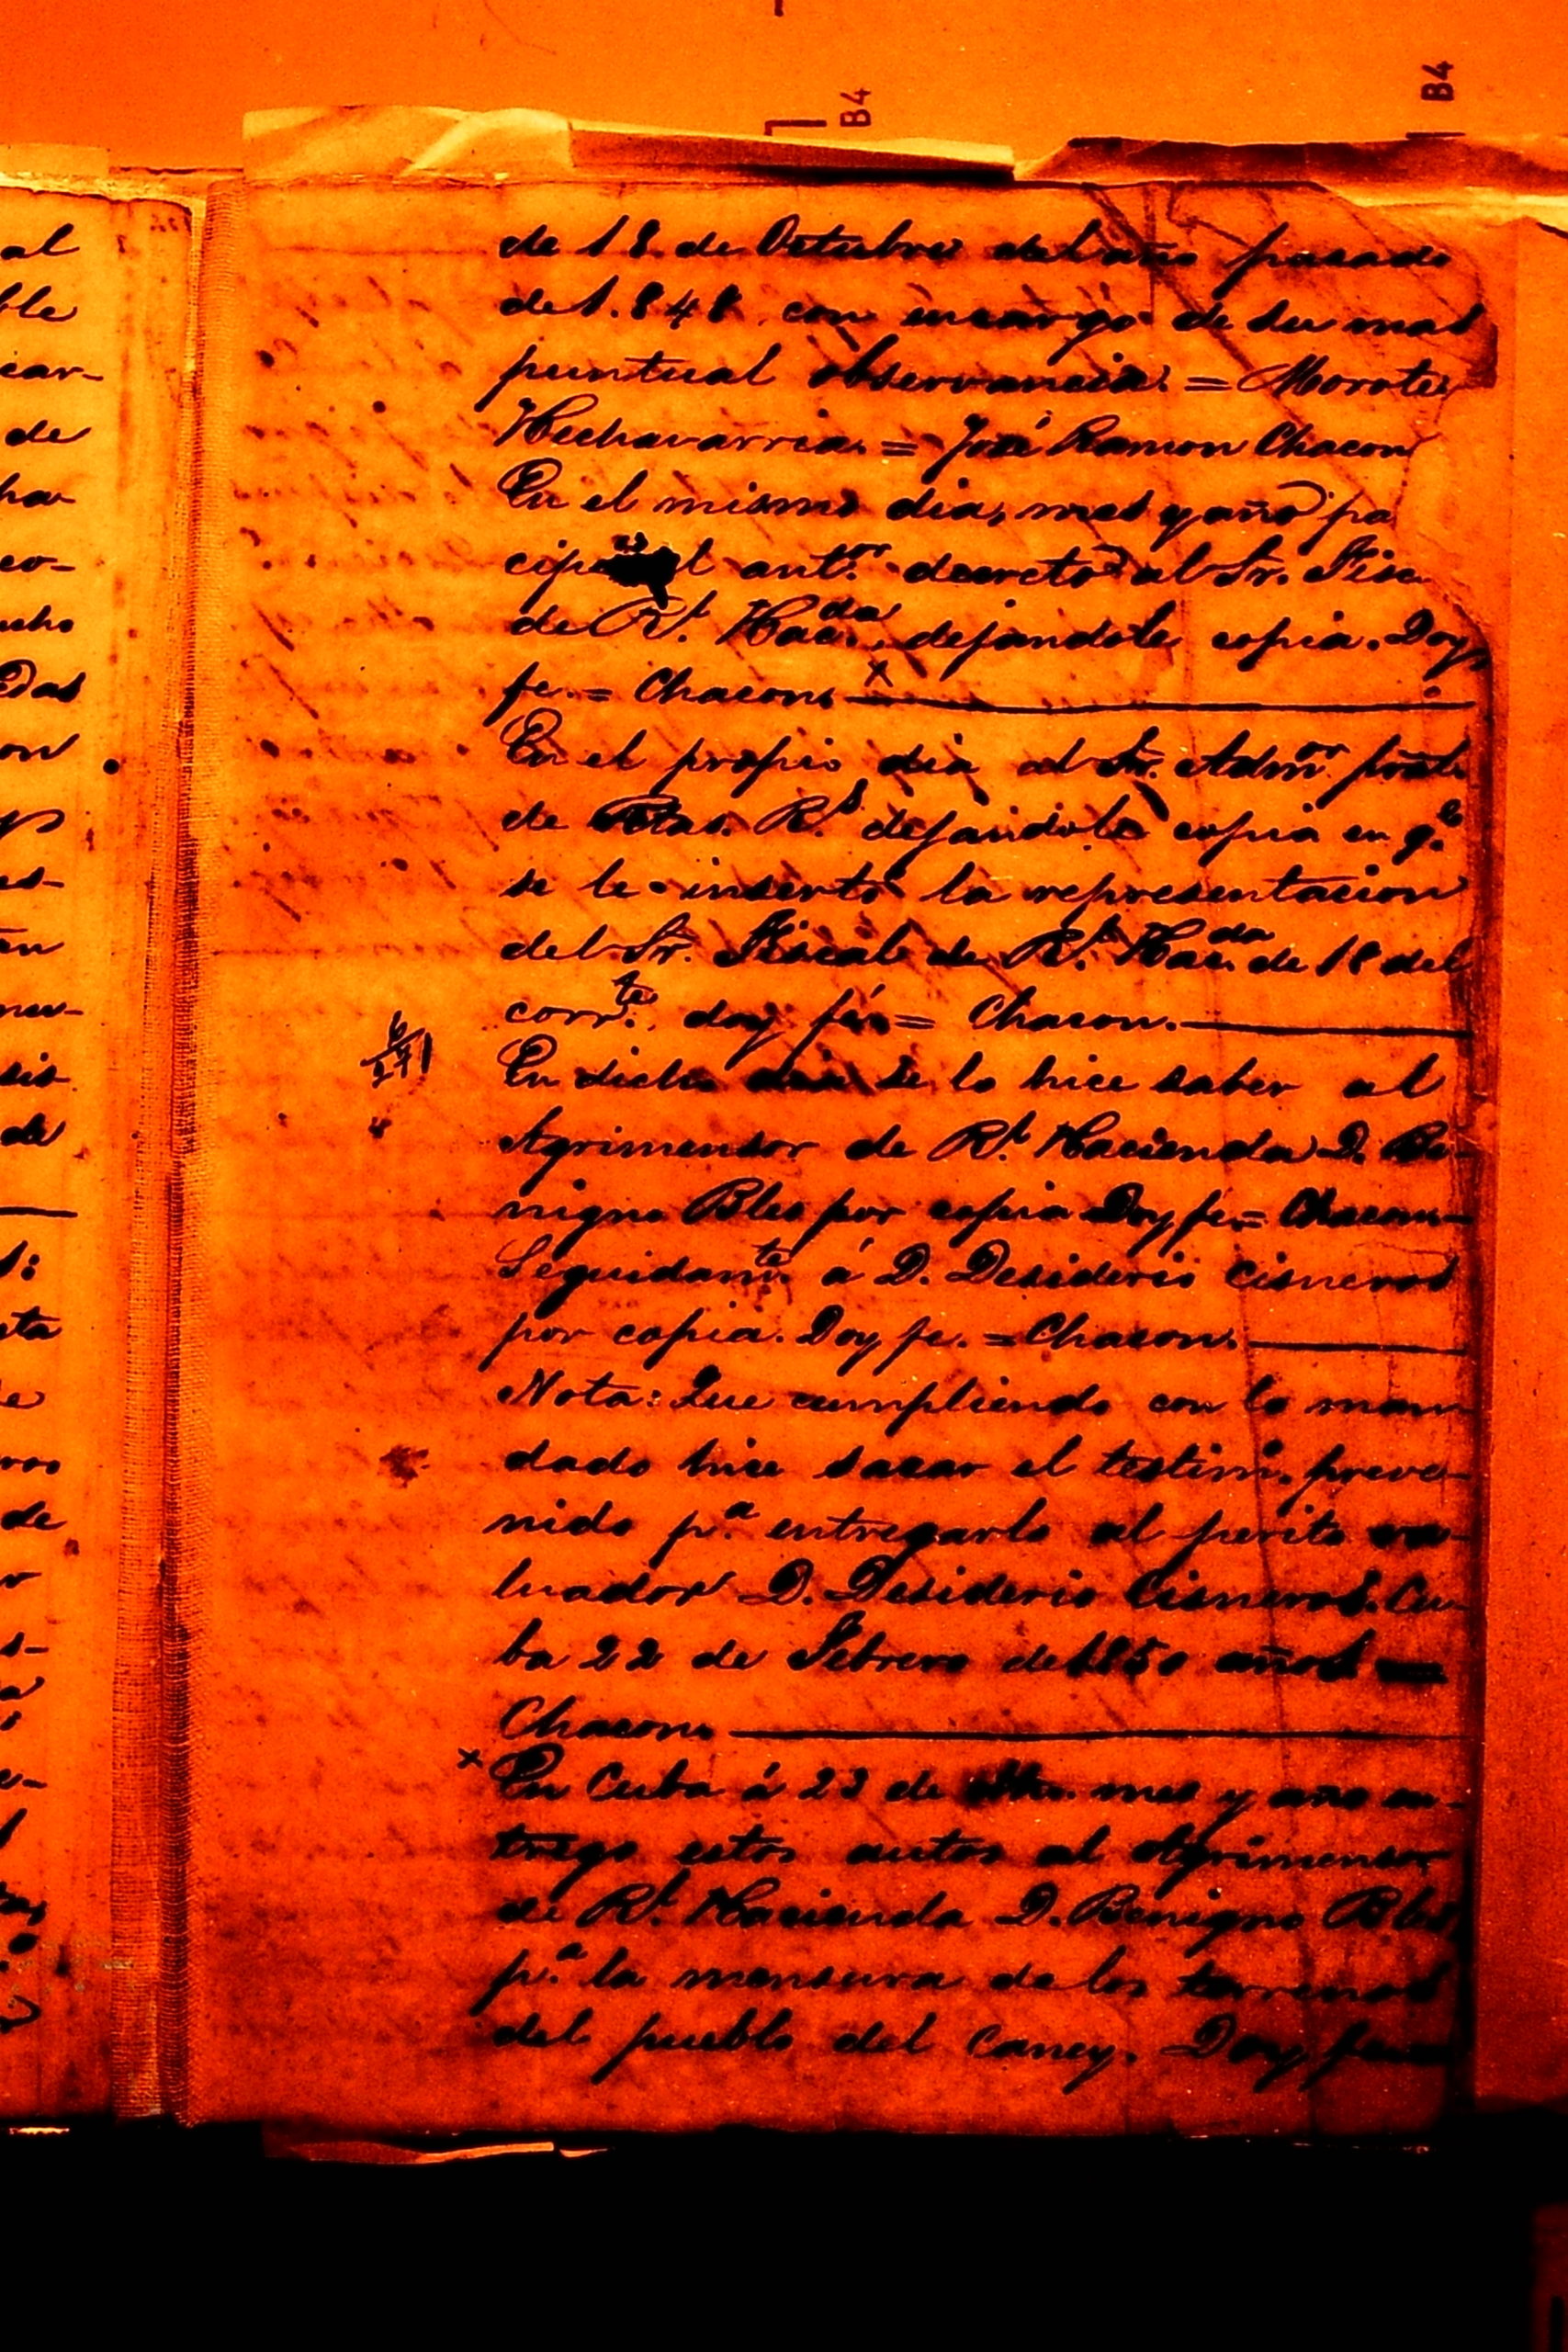 B4
B4
de 18. de Octubre del año pasado
de 1.848 con encargo de su mas
puntual observancia. = Morote
Hechavarria. = José Ramon Chacon
En el mismo dia, mes y año pa
cip el ant.or decreto al Sr. Fisc
de R.l Hac.da, dejandole copia. Doy
fe. = Chacon.
x
En el propio dia al Sr. Adm.or pral.
de Rtas. R.s dejandole copia en q.e
se le insertó la representacion
del Sr. Fiscal de R.l Hac.da de 18 del
corr.te, doy fé = Chacon.
En dicho dia se lo hice saber al
Agrimensor de R.l Hacienda D. Be-
nigno Bles por copia Doy fe. = Chacon
Seguidam.te á D. Desiderio Cisneros
por copia. Doy fe. = Chacon.
Nota: Que cumpliendo con lo man
dado hice sacar el testim. preve-
nido p.a entregarlo al perito va-
luador D. Desiderio Cisneros. Cu-
ba 22 de Febrero de 1850 años =
Chacon.
x En Cuba á 23 de dho. mes y año en-
trego estos autos al Agrimensor
de R.l Hacienda D. Benigno Bles
p.a la mensura de los terrenos
del pueblo del Caney. Doy fe
al
de